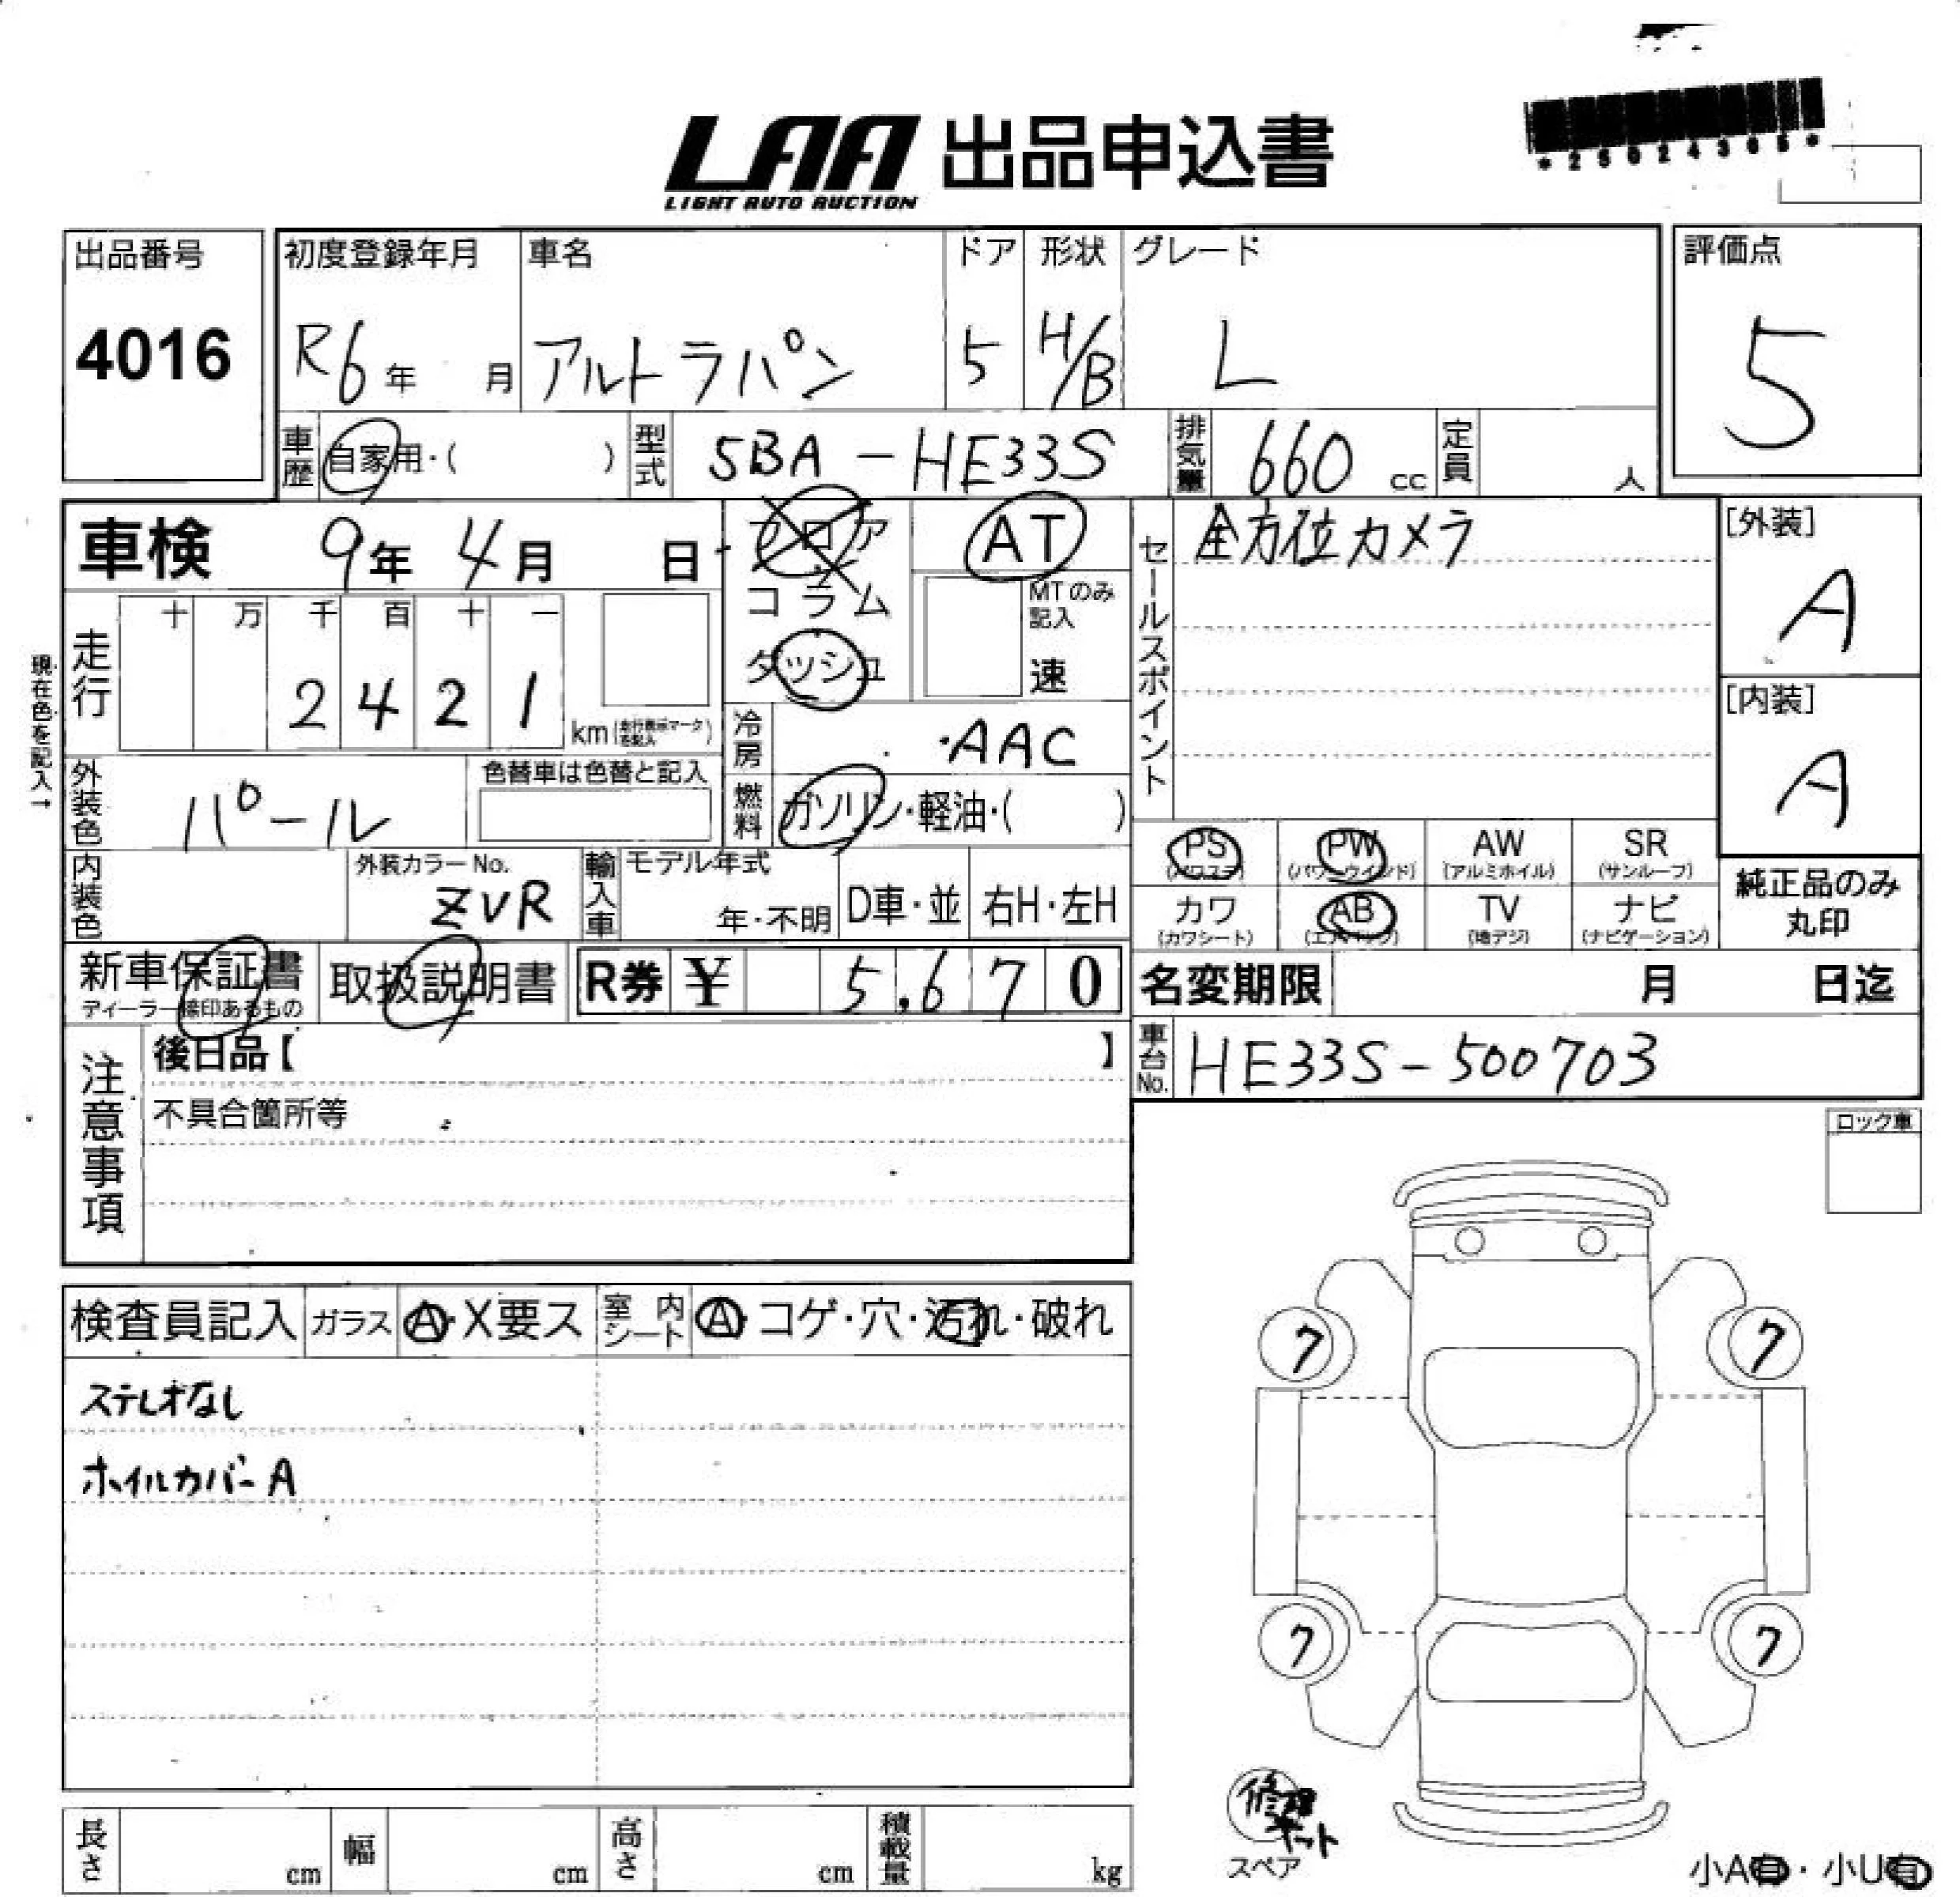 LAA 出品申込書
LIGHT AUTO AUCTION
*25024305*
出品番号
4016
初度登録年月 車名 ドア 形状 グレード
R6年 月 アルトラパン 5 H/B L
評価点
5
車歴 自家用・( ) 型式 5BA-HE33S 排気量 660 cc 定員 人
車検 9年 4月 日
フロア
コラム
ダッシュ
AT
MTのみ記入
速
セールスポイント
全方位カメラ
[外装]
A
[内装]
A
現在色を記入→
走行
十 万 千 百 十 一
2 4 2 1
km (走行表示マークを記入)
冷房 AAC
燃料 ガソリン・軽油・( )
外装色 パール 色替車は色替と記入
内装色 外装カラーNo. ZVR
輸入車 モデル年式 年・不明 D車・並 右H・左H
PS (パワステ) PW (パワーウインド) AW (アルミホイル) SR (サンルーフ)
カワ (カワシート) AB (エアバッグ) TV (地デジ) ナビ (ナビゲーション)
純正品のみ
丸印
新車保証書 取扱説明書 R券 ¥ 5,670
ディーラー捺印あるもの
名変期限 月 日迄
車台No. HE33S-500703
注意事項
後日品【 】
不具合箇所等
ロック車
検査員記入 ガラス A・X要ス 室内シート A・コゲ・穴・汚れ・破れ
ステレオなし
ホイルカバーA
7 7
7 7
修理キット
スペア
長さ cm 幅 cm 高さ cm 積載量 kg
小A有・小U有